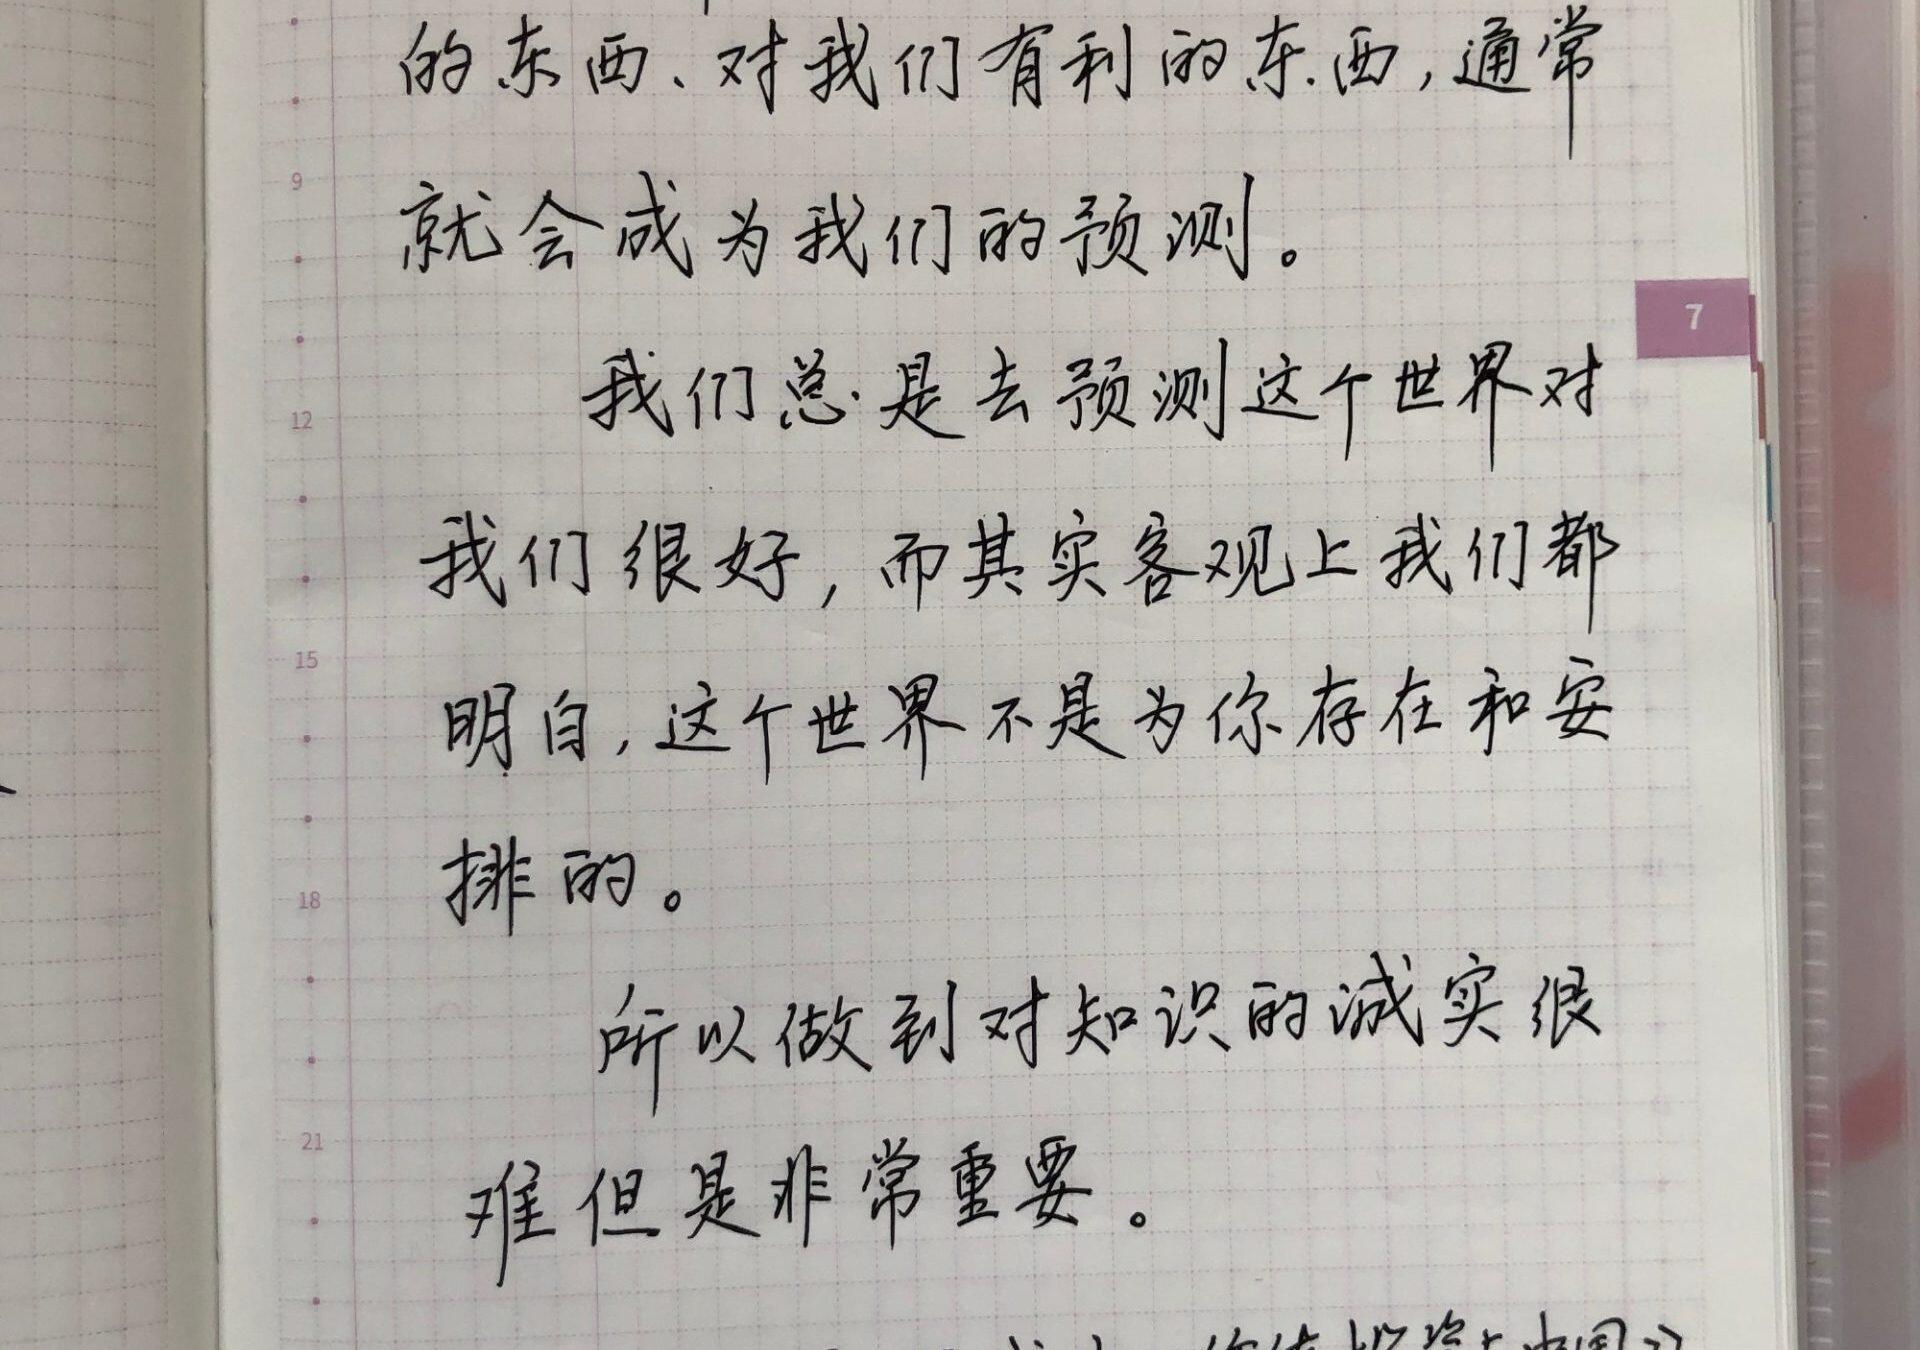 的东西、对我们有利的东西,通常
就会成为我们的预测。
7
9
我们总是去预测这个世界对
12
我们很好,而其实客观上我们都
明白,这个世界不是为你存在和安
15
排的。
18
所以做到对知识的诚实很
21
难但是非常重要。